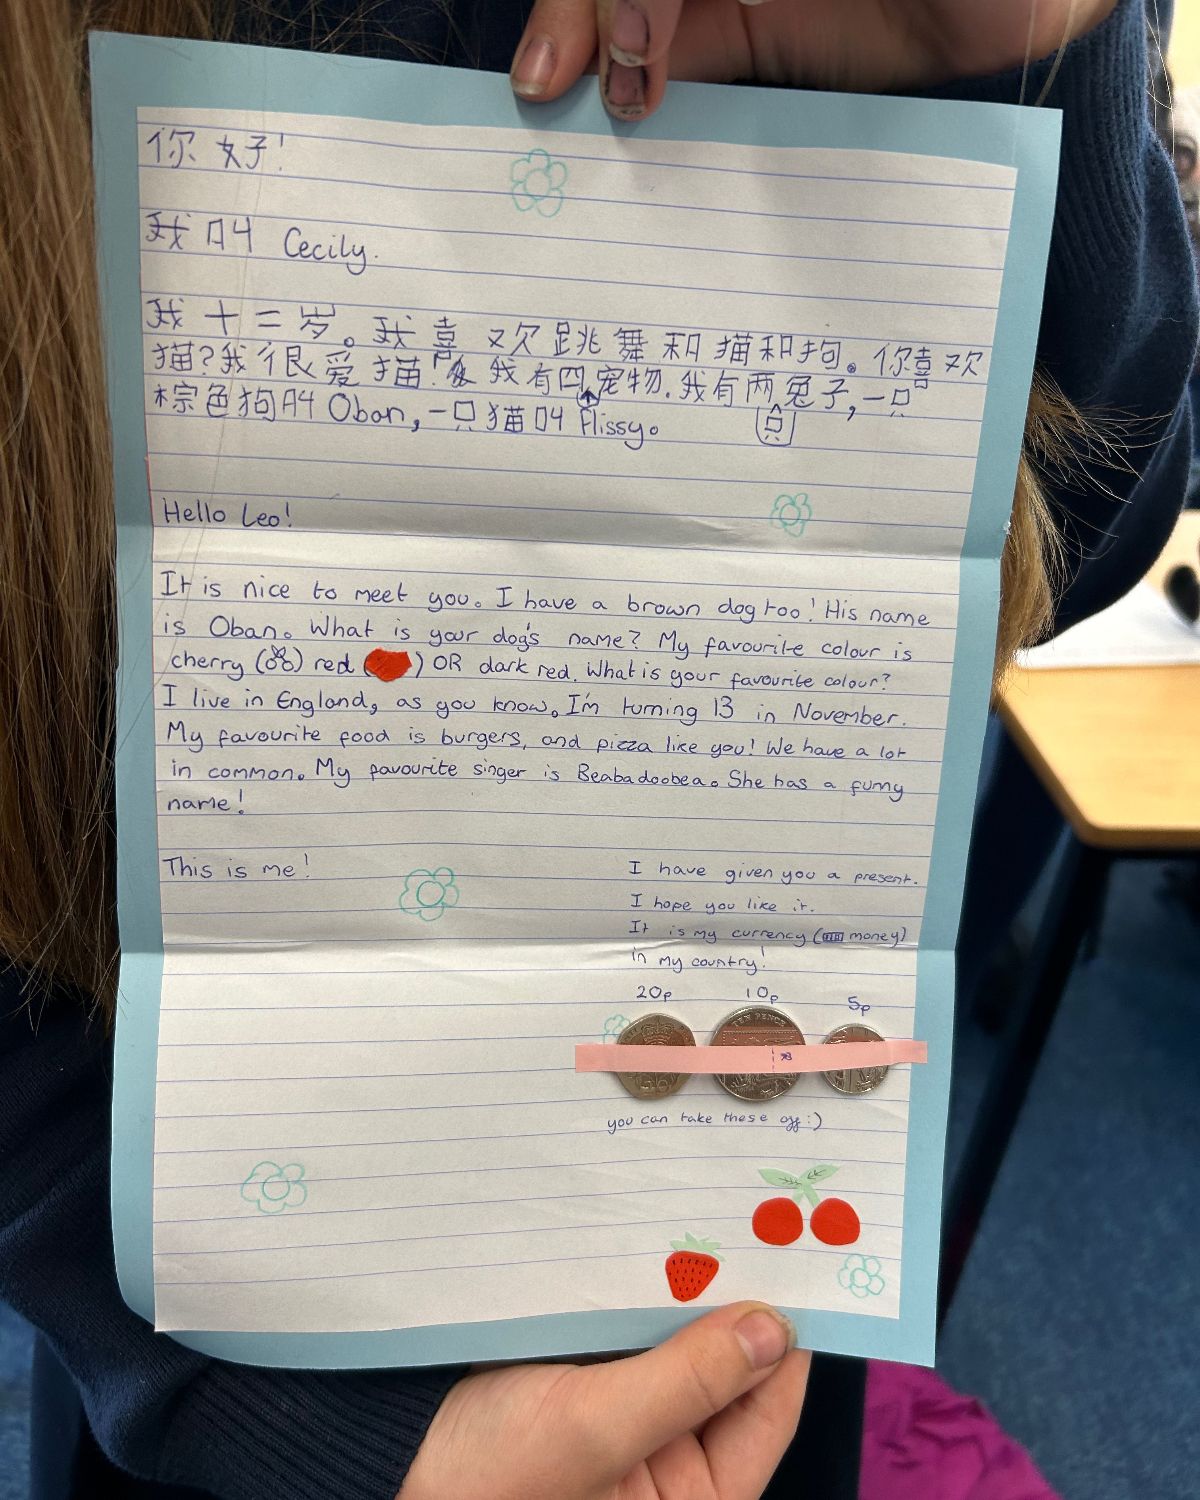 你好!
我叫 Cecily.
我十二岁。我喜欢跳舞和猫和狗。你喜欢
猫?我很爱猫! 我有四宠物.我有两只兔子,一只
棕色狗叫 Oban,一只猫叫 Flissy。
Hello Leo!
It is nice to meet you. I have a brown dog too! His name
is Oban. What is your dog's name? My favourite colour is
cherry ( ) red ( ) OR dark red. What is your favourite colour?
I live in England, as you know. I'm turning 13 in November.
My favourite food is burgers, and pizza like you! We have a lot
in common. My favourite singer is Beabadoobea. She has a funny
name!
This is me!
I have given you a present.
I hope you like it.
It is my currency ( money)
in my country!
20p 10p 5p
TEN PENCE
you can take these off :)